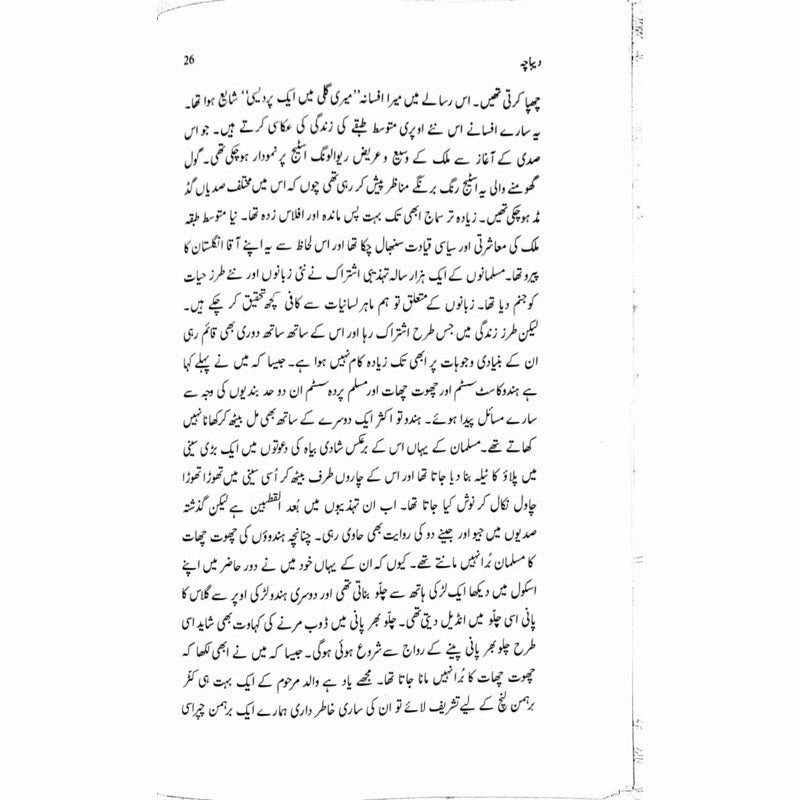 دیباچہ
26
چھپا کرتی تھیں۔ اس رسالے میں میرا افسانہ ”میری گلی میں ایک پردیسی“ شایع ہوا تھا۔
یہ سارے افسانے اس نئے اوپری متوسط طبقے کی زندگی کی عکاسی کرتے ہیں۔ جو اس
صدی کے آغاز سے ملک کے وسیع و عریض ریوالونگ اسٹیج پر نمودار ہوچکی تھی۔ گول
گھومنے والی یہ اسٹیج رنگ برنگے مناظر پیش کر رہی تھی چوں کہ اس میں مختلف صدیاں گڈ
مڈ ہوچکی تھیں۔ زیادہ تر سماج ابھی تک بہت پس ماندہ اور افلاس زدہ تھا۔ نیا متوسط طبقہ
ملک کی معاشرتی اور سیاسی قیادت سنبھال چکا تھا اور اس لحاظ سے یہ اپنے آقا انگلستان کا
پیرو تھا۔ مسلمانوں کے ایک ہزار سالہ تہذیبی اشتراک نے نئی زبانوں اور نئے طرز حیات
کو جنم دیا تھا۔ زبانوں کے متعلق تو ہم ماہر لسانیات سے کافی کچھ تحقیق کر چکے ہیں۔
لیکن طرز زندگی میں جس طرح اشتراک رہا اور اس کے ساتھ ساتھ دوری بھی قائم رہی
ان کے بنیادی وجوہات پر ابھی تک زیادہ کام نہیں ہوا ہے۔ جیسا کہ میں نے پہلے کہا
ہے ہندو کاسٹ سسٹم اور چھوت چھات اور مسلم پردہ سسٹم ان دو حد بندیوں کی وجہ سے
سارے مسائل پیدا ہوئے۔ ہندو تو اکثر ایک دوسرے کے ساتھ بھی مل بیٹھ کر کھانا نہیں
کھاتے تھے۔ مسلمان کے یہاں اس کے برعکس شادی بیاہ کی دعوتوں میں ایک بڑی سینی
میں پلاؤ کا ٹیلہ بنا دیا جاتا تھا اور اس کے چاروں طرف بیٹھ کر اُسی سینی میں تھوڑا تھوڑا
چاول نکال کر نوش کیا جاتا تھا۔ اب ان تہذیبوں میں بُعد القطبین ہے لیکن گذشتہ
صدیوں میں جیو اور جینے دو کی روایت بھی حاوی رہی۔ چنانچہ ہندوؤں کی چھوت چھات
کا مسلمان بُرا نہیں مانتے تھے۔ کیوں کہ ان کے یہاں خود میں نے دور حاضر میں اپنے
اسکول میں دیکھا ایک لڑکی ہاتھ سے چلّو بناتی تھی اور دوسری ہندو لڑکی اوپر سے گلاس کا
پانی اسی چلّو میں انڈیل دیتی تھی۔ چلّو بھر پانی میں ڈوب مرنے کی کہاوت بھی شاید اسی
طرح چلو بھر پانی پینے کے رواج سے شروع ہوئی ہوگی۔ جیسا کہ میں نے ابھی لکھا کہ
چھوت چھات کا بُرا نہیں مانا جاتا تھا۔ مجھے یاد ہے والد مرحوم کے ایک بہت ہی کٹر
برہمن لنچ کے لیے تشریف لائے تو ان کی ساری خاطر داری ہمارے ایک برہمن چپراسی